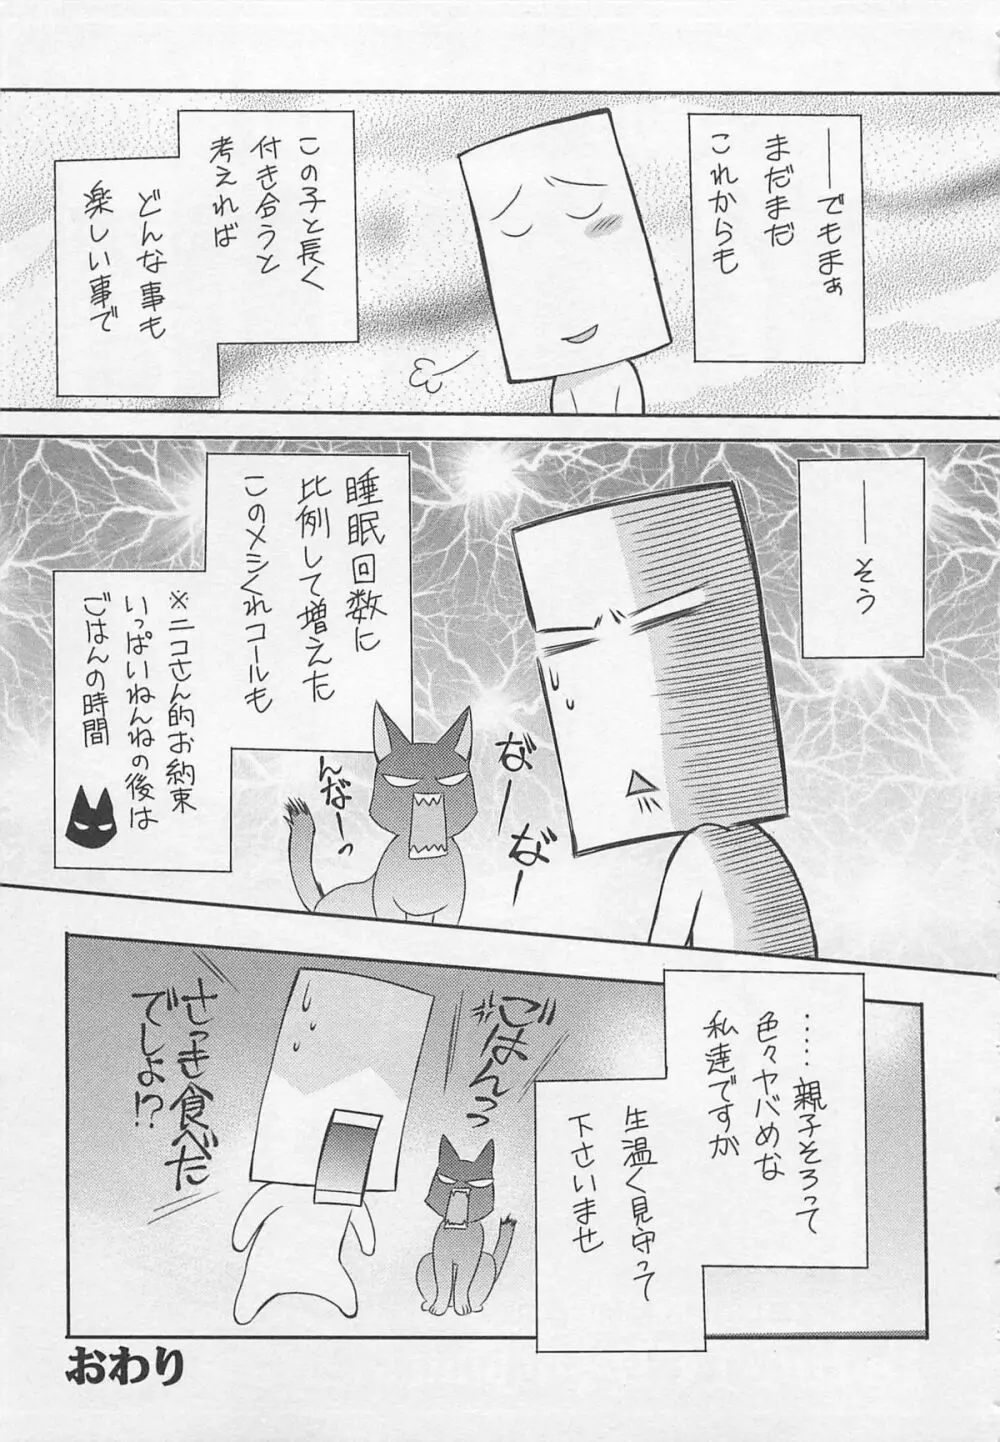 ――でもまぁ
まだまだ
これからも
この子と長く
付き合うと
考えれば
どんな事も
楽しい事で
――そう
睡眠回数に
比例して増えた
このメシくれコールも
※ニコさん的お約束
いっぱいねんねの後は
ごはんの時間
なーなー
んなーっ
……親子そろって
色々ヤバめな
私達ですが
生温く見守って
下さいませ
ごはんっっ
さっき食べた
でしょ!?
おわり